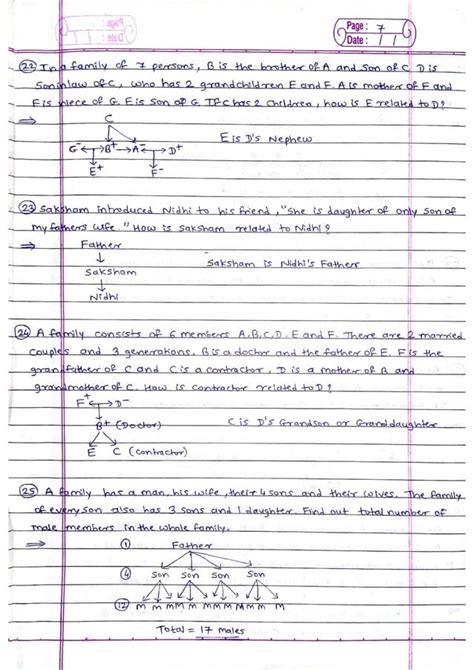 Page: 7
Date:
(22) In a family of 7 persons, B is the brother of A and son of C. D is
son in law of C, who has 2 grandchildren E and F. A is mother of F and
F is niece of G. E is son of G. If C has 2 children, how is E related to D?
⇒ C
G⁻ ↔ B⁺ → A⁻ ↔ D⁺ E is D's Nephew
E⁺ F⁻
(23) Saksham introduced Nidhi to his friend, "She is daughter of only son of
my fathers wife." How is Saksham related to Nidhi?
⇒ Father
Saksham Saksham is Nidhi's Father
Nidhi
(24) A family consists of 6 members A,B,C,D, E and F. There are 2 married
couples and 3 generations. B is a doctor and the father of E. F is the
grandfather of C and C is a contractor, D is a mother of B and
grandmother of C. How is contractor related to D?
F⁺ ↔ D⁻
B⁺ (Doctor) C is D's Grandson or Granddaughter
E C (Contractor)
(25) A family has a man, his wife, their 4 sons and their wives. The family
of every son also has 3 sons and 1 daughter. Find out total number of
male members in the whole family.
⇒ (1) Father
(4) Son Son Son Son
(12) M M M M M M M M M M M M
Total = 17 males